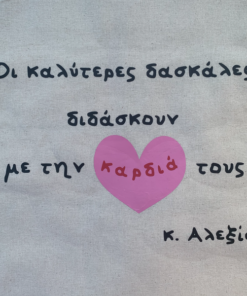 Οι καλύτερες δασκάλες
διδάσκουν
με την καρδιά τους
κ. Αλεξία